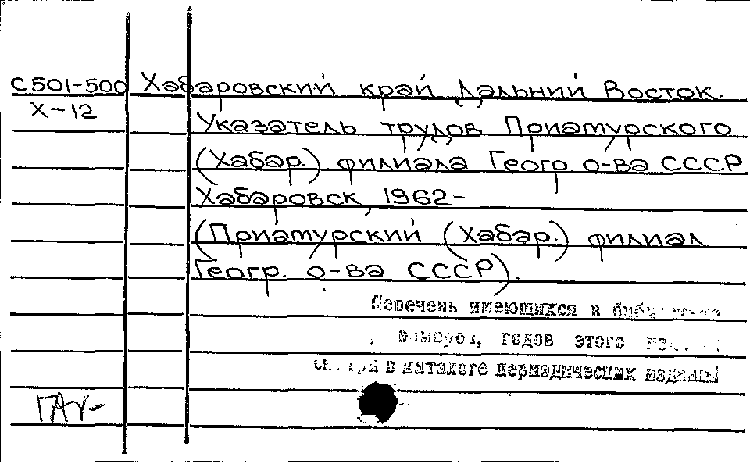 С501-500 Хабаровский край, Дальний Восток.
Х-12
Указатель трудов Приамурского
(Хабар.) филиала Геогр. о-ва СССР
Хабаровск, 1962-
(Приамурский (Хабар.) филиал
Геогр. о-ва СССР).
Перечень имеющихся в
годов этого
в каталоге периодических изданий